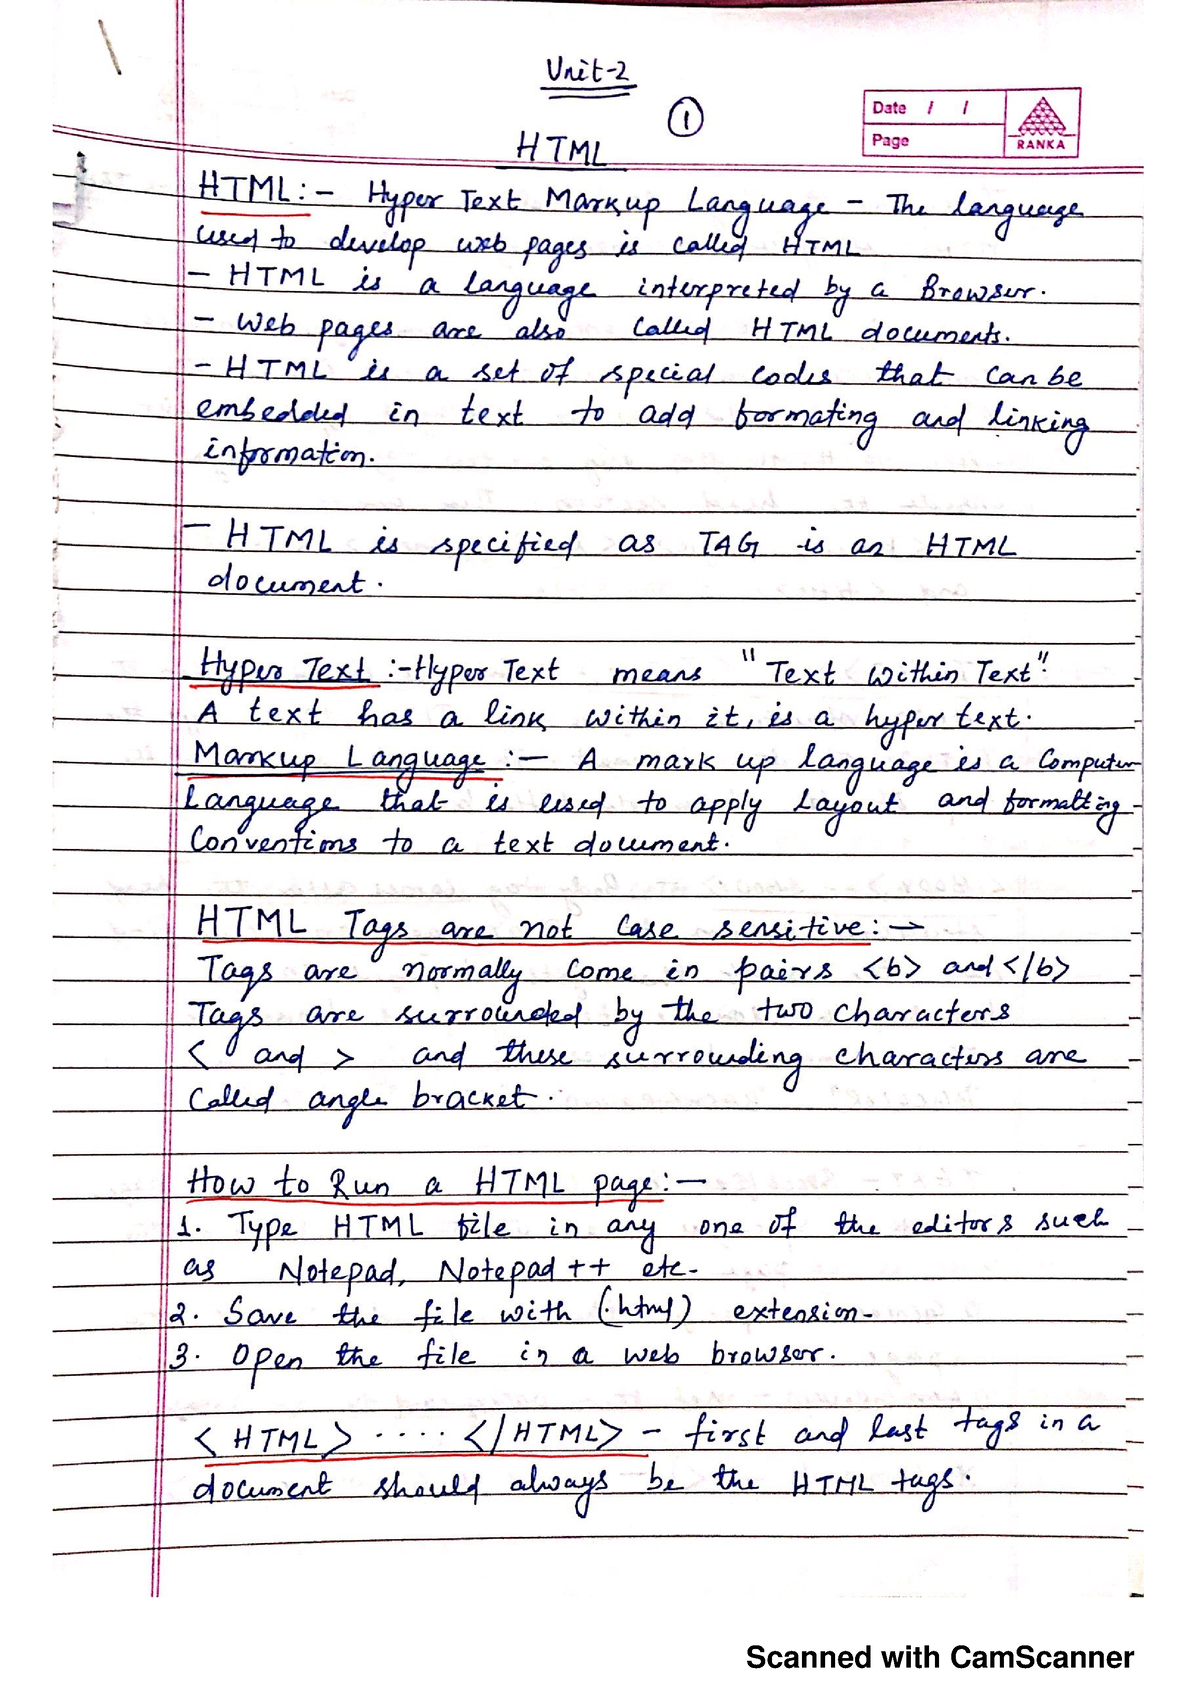 Unit-2
1
Date / /
Page
RANKA
HTML
HTML:- Hyper Text Markup Language - The language
used to develop web pages is called HTML
- HTML is a language interpreted by a Browser.
- Web pages are also called HTML documents.
- HTML is a set of special codes that can be
embedded in text to add formating and linking
information.
- HTML is specified as TAG is an HTML
document.
Hyper Text :- Hyper Text means "Text Within Text".
A text has a link within it, is a hyper text.
Markup Language :- A mark up language is a Computer
Language that is used to apply Layout and formatting
Conventions to a text document.
HTML Tags are not Case sensitive:→
Tags are normally Come in pairs <b> and </b>
Tags are surrounded by the two characters
< and > and these surrounding characters are
Called angle bracket.
How to Run a HTML page:-
1. Type HTML file in any one of the editors such
as Notepad, Notepad++ etc.
2. Save the file with (.html) extension.
3. Open the file in a web browser.
<HTML> ..... </HTML> - first and last tags in a
document should always be the HTML tags.
Scanned with CamScanner